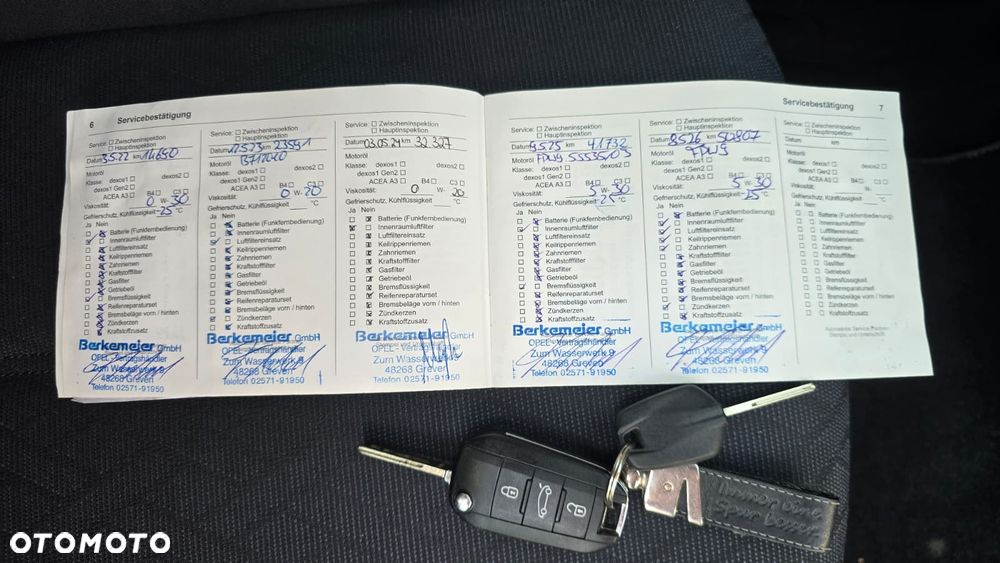 6 Servicebestätigung
Service: Zwischeninspektion
Hauptinspektion
Datum 3.5.22 km 14650
Motoröl
Klasse: dexos1 dexos2
dexos1 Gen2
ACEA A3 B4 C3
Viskosität: 0 W- 30
Gefrierschutz, Kühlflüssigkeit -25 °C
Ja Nein
Batterie (Funkfernbedienung)
Innenraumluftfilter
Luftfiltereinsatz
Keilrippenriemen
Zahnriemen
Kraftstofffilter
Gasfilter
Getriebeöl
Bremsflüssigkeit
Reifenreparaturset
Bremsbeläge vorn / hinten
Zündkerzen
Kraftstoffzusatz
Berkemeier GmbH
OPEL-Vertragshändler
Zum Wasserwerk 9
48268 Greven
Telefon 02571-91950
Service: Zwischeninspektion
Hauptinspektion
Datum km 23591
Motoröl
Klasse: dexos1 dexos2
dexos1 Gen2
ACEA A3 B4 C3
Viskosität: 0 W- 20
Gefrierschutz, Kühlflüssigkeit °C
Ja Nein
Batterie (Funkfernbedienung)
Innenraumluftfilter
Luftfiltereinsatz
Keilrippenriemen
Zahnriemen
Kraftstofffilter
Gasfilter
Getriebeöl
Bremsflüssigkeit
Reifenreparaturset
Bremsbeläge vorn / hinten
Zündkerzen
Kraftstoffzusatz
Berkemeier GmbH
OPEL-Vertragshändler
Zum Wasserwerk 9
48268 Greven
Telefon 02571-91950
Service: Zwischeninspektion
Hauptinspektion
Datum 03.05.24 km 32327
Motoröl
Klasse: dexos1 dexos2
dexos1 Gen2
ACEA A3 B4 C3
Viskosität: 0 W- 20
Gefrierschutz, Kühlflüssigkeit °C
Ja Nein
Batterie (Funkfernbedienung)
Innenraumluftfilter
Luftfiltereinsatz
Keilrippenriemen
Zahnriemen
Kraftstofffilter
Gasfilter
Getriebeöl
Bremsflüssigkeit
Reifenreparaturset
Bremsbeläge vorn / hinten
Zündkerzen
Kraftstoffzusatz
Berkemeier GmbH
OPEL-Vertragshändler
Zum Wasserwerk 9
48268 Greven
Telefon 02571-91950
Servicebestätigung 7
Service: Zwischeninspektion
Hauptinspektion
Datum 9.5.25 km 41732
Motoröl
Klasse: dexos1 dexos2
dexos1 Gen2
ACEA A3 B4 C3
Viskosität: 5 W- 30
Gefrierschutz, Kühlflüssigkeit -25 °C
Ja Nein
Batterie (Funkfernbedienung)
Innenraumluftfilter
Luftfiltereinsatz
Keilrippenriemen
Zahnriemen
Kraftstofffilter
Gasfilter
Getriebeöl
Bremsflüssigkeit
Reifenreparaturset
Bremsbeläge vorn / hinten
Zündkerzen
Kraftstoffzusatz
Berkemeier GmbH
OPEL-Vertragshändler
Zum Wasserwerk 9
48268 Greven
Telefon 02571-91950
Service: Zwischeninspektion
Hauptinspektion
Datum km 50807
Motoröl
Klasse: dexos1 dexos2
dexos1 Gen2
ACEA A3 B4 C3
Viskosität: 5 W- 30
Gefrierschutz, Kühlflüssigkeit -25 °C
Ja Nein
Batterie (Funkfernbedienung)
Innenraumluftfilter
Luftfiltereinsatz
Keilrippenriemen
Zahnriemen
Kraftstofffilter
Gasfilter
Getriebeöl
Bremsflüssigkeit
Reifenreparaturset
Bremsbeläge vorn / hinten
Zündkerzen
Kraftstoffzusatz
Berkemeier GmbH
OPEL-Vertragshändler
Zum Wasserwerk 9
48268 Greven
Telefon 02571-91950
Service: Zwischeninspektion
Hauptinspektion
Datum km
Motoröl
Klasse: dexos1 dexos2
dexos1 Gen2
ACEA A3 B4 C3
Viskosität: W-
Gefrierschutz, Kühlflüssigkeit °C
Ja Nein
Batterie (Funkfernbedienung)
Innenraumluftfilter
Luftfiltereinsatz
Keilrippenriemen
Zahnriemen
Kraftstofffilter
Gasfilter
Getriebeöl
Bremsflüssigkeit
Reifenreparaturset
Bremsbeläge vorn / hinten
Zündkerzen
Kraftstoffzusatz
Immer eine
Spur besser
OTOMOTO